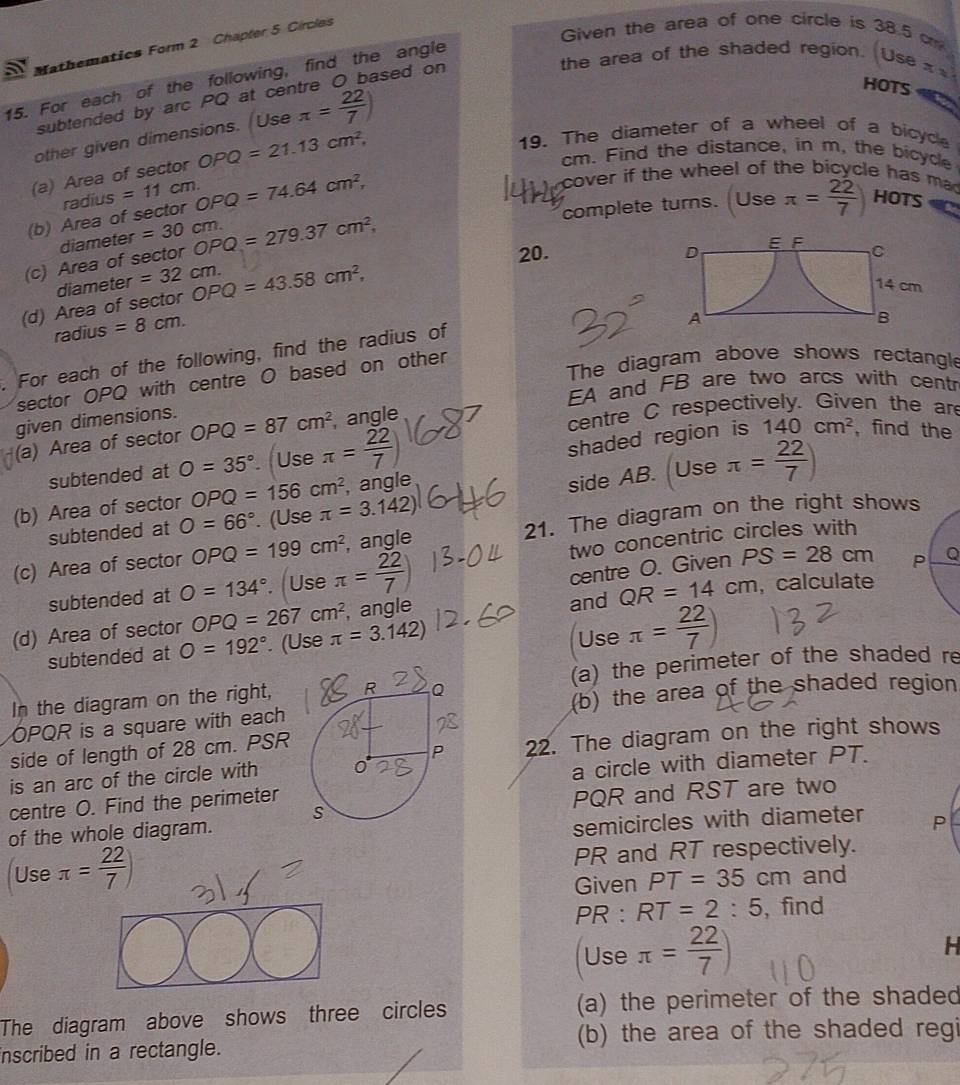 Mathematics Form 2 Chapter 5 Circles
15. For each of the following, find the angle
subtended by arc PQ at centre O based on
other given dimensions. (Use π = 22/7)
(a) Area of sector OPQ = 21.13 cm²,
radius = 11 cm.
(b) Area of sector OPQ = 74.64 cm²,
diameter = 30 cm.
(c) Area of sector OPQ = 279.37 cm²,
diameter = 32 cm.
(d) Area of sector OPQ = 43.58 cm²,
radius = 8 cm.
. For each of the following, find the radius of
sector OPQ with centre O based on other
given dimensions.
(a) Area of sector OPQ = 87 cm², angle
subtended at O = 35°. (Use π = 22/7) 16.87
(b) Area of sector OPQ = 156 cm², angle
subtended at O = 66°. (Use π = 3.142) 16.46
(c) Area of sector OPQ = 199 cm², angle
subtended at O = 134°. (Use π = 22/7) 13.04
(d) Area of sector OPQ = 267 cm², angle
subtended at O = 192°. (Use π = 3.142) 12.60
In the diagram on the right,
OPQR is a square with each
side of length of 28 cm. PSR
is an arc of the circle with
centre O. Find the perimeter
of the whole diagram.
(Use π = 22/7)
188
R 28 Q
28 28
O 28 P
S
31.5
The diagram above shows three circles
inscribed in a rectangle.
Given the area of one circle is 38.5 cm
the area of the shaded region. (Use π =
HOTS
19. The diameter of a wheel of a bicycle
cm. Find the distance, in m, the bicycle
cover if the wheel of the bicycle has mad
complete turns. (Use π = 22/7) HOTS
20.
D E F C
14 cm
A B
32
The diagram above shows rectangle
EA and FB are two arcs with centr
centre C respectively. Given the are
shaded region is 140 cm², find the
side AB. (Use π = 22/7)
21. The diagram on the right shows
two concentric circles with
centre O. Given PS = 28 cm
and QR = 14 cm, calculate
(Use π = 22/7) 132
P Q
(a) the perimeter of the shaded re
(b) the area of the shaded region
462
22. The diagram on the right shows
a circle with diameter PT.
PQR and RST are two
semicircles with diameter
PR and RT respectively.
Given PT = 35 cm and
PR : RT = 2 : 5, find
(Use π = 22/7) 110
P
H
(a) the perimeter of the shaded
(b) the area of the shaded regi
275